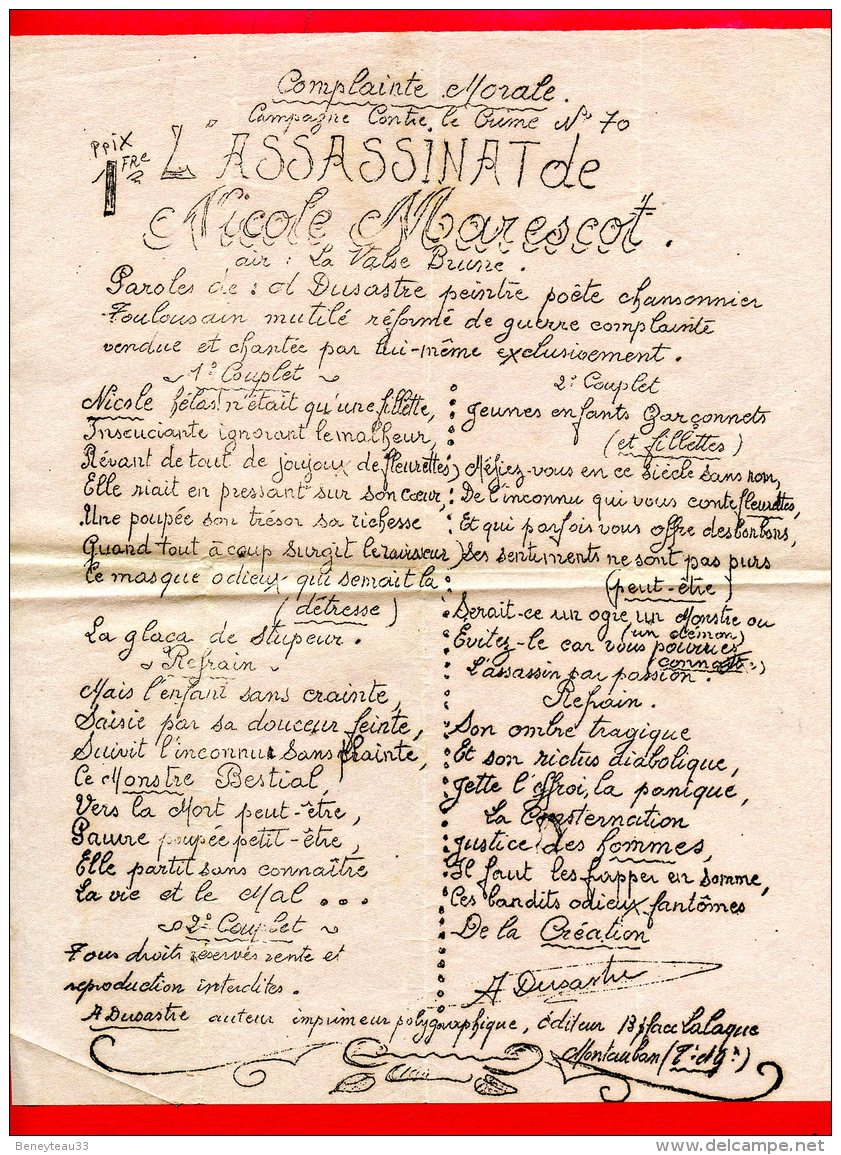 Complainte Morale.
Campagne Contre le Crime N° 70
Prix
1 Fre
L'ASSASSINAT de
Nicole Marescot.
air : La Valse Brune.
Paroles de : A Dusastre peintre poête chansonnier
Toulousain mutilé réformé de guerre complainte
vendue et chantée par lui-même exclusivement.
1° Couplet
Nicole hélas n'était qu'une fillette,
Insouciante ignorant le malheur,
Rêvant de tout de joujoux de fleurettes
Elle riait en pressant sur son cœur,
Une poupée son trésor sa richesse
Quand tout à coup surgit le ravisseur
Le masque odieux qui semait la
(détresse)
La glaça de stupeur.
Refrain
Mais l'enfant sans crainte,
Saisie par sa douceur feinte,
Suivit l'inconnu sans plainte,
Ce Monstre Bestial,
Vers la Mort peut-être,
Pauvre poupée petit-être,
Elle partit sans connaître
La vie et le Mal ...
2° Couplet
Tous droits réservés vente et
reproduction interdites.
2° Couplet
Jeunes enfants Garçonnets
(et fillettes)
Méfiez-vous en ce siècle sans nom,
De l'inconnu qui vous conte fleurettes,
Et qui parfois vous offre des bonbons,
Ses sentiments ne sont pas purs
(peut-être)
Serait-ce un ogre un Monstre ou
(un démon)
Évitez-le car vous pourriez
(connaître)
L'assassin par passion.
Refrain.
Son ombre tragique
Et son rictus diabolique,
Jette l'effroi, la panique,
La Consternation
Justice des hommes,
Il faut les frapper en somme,
Ces bandits odieux fantômes
De la Création
A Dusastre
A Dusastre auteur imprimeur polygraphique, éditeur 13 place Lalaque
Montauban (T. et G.)
Beneyteau33